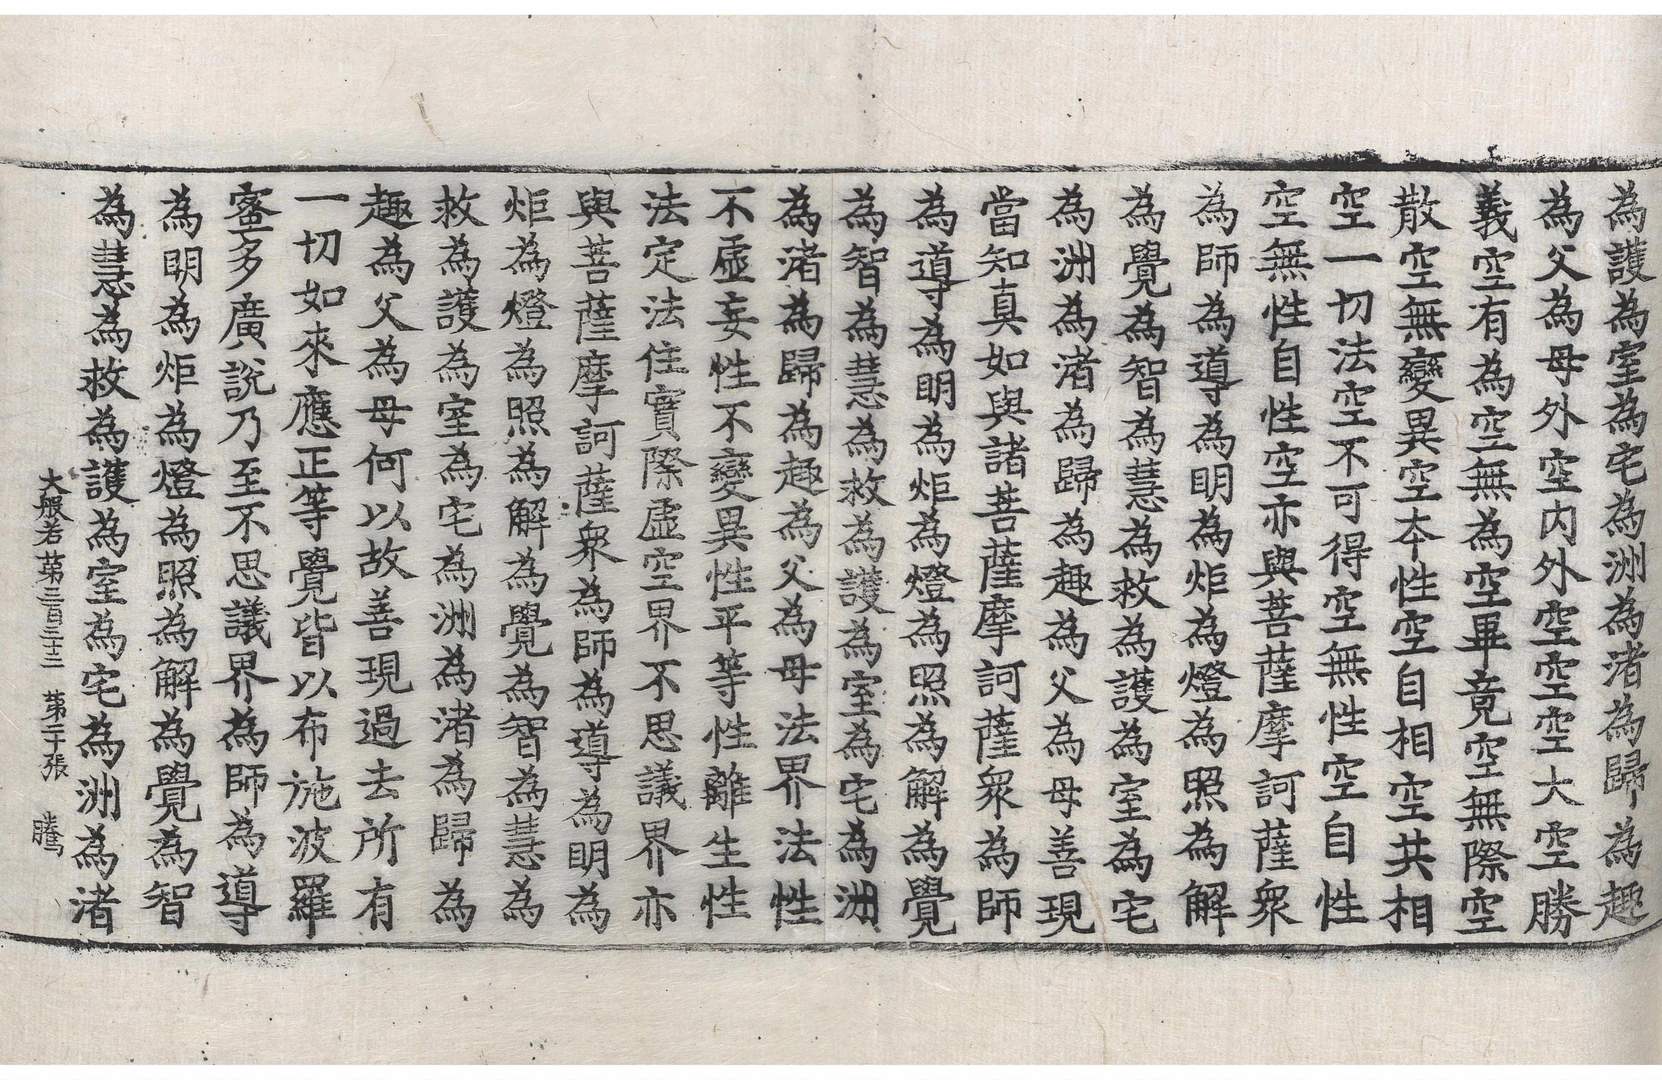 為護為室為宅為洲為渚為歸為趣
為父為母外空內外空空空大空勝
義空有為空無為空畢竟空無際空
散空無變異空本性空自相空共相
空一切法空不可得空無性空自性
空無性自性空亦與菩薩摩訶薩衆
為師為導為明為炬為燈為照為解
為覺為智為慧為救為護為室為宅
為洲為渚為歸為趣為父為母善現
當知真如與諸菩薩摩訶薩衆為師
為導為明為炬為燈為照為解為覺
為智為慧為救為護為室為宅為洲
為渚為歸為趣為父為母法界法性
不虛妄性不變異性平等性離生性
法定法住實際虛空界不思議界亦
與菩薩摩訶薩衆為師為導為明為
炬為燈為照為解為覺為智為慧為
救為護為室為宅為洲為渚為歸為
趣為父為母何以故善現過去所有
一切如來應正等覺皆以布施波羅
蜜多廣說乃至不思議界為師為導
為明為炬為燈為照為解為覺為智
為慧為救為護為室為宅為洲為渚
大般若第三百三十三 第二十張 騰